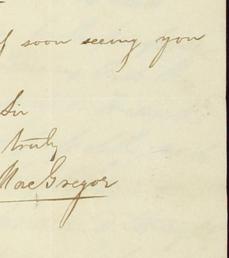 of soon seeing you
Sir
truly
MacGregor